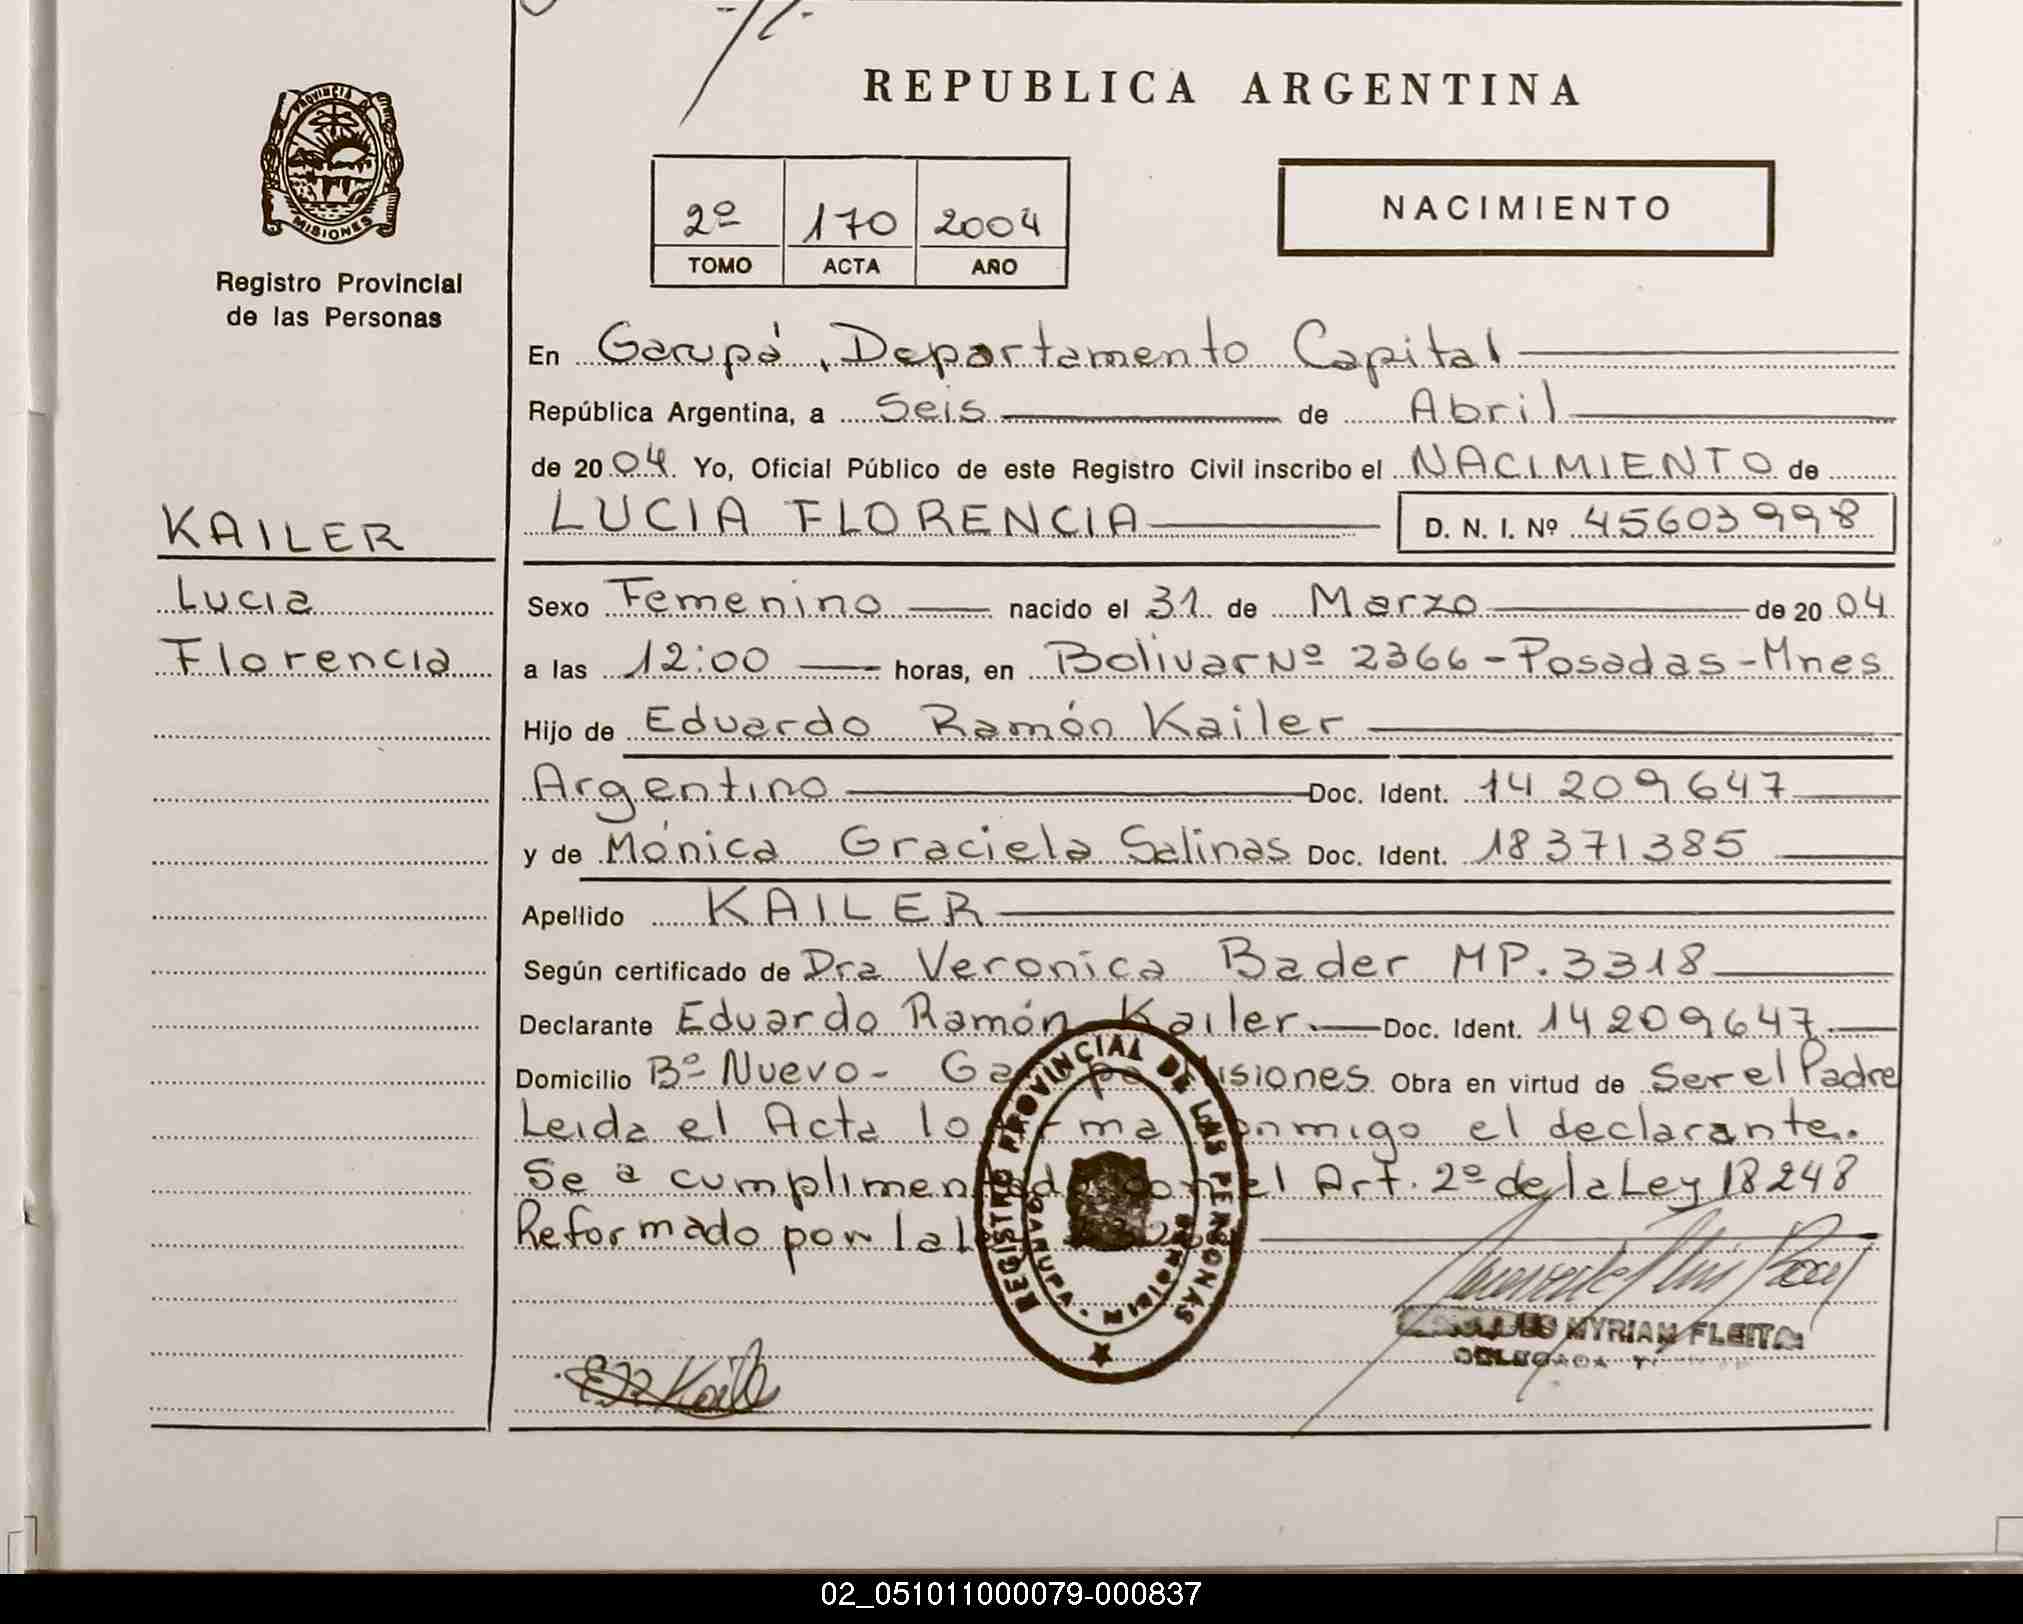 REPUBLICA ARGENTINA
PROVINCIA DE
MISIONES
Registro Provincial
de las Personas
2º 170 2004
TOMO ACTA AÑO
NACIMIENTO
En Garupá, Departamento Capital
República Argentina, a Seis de Abril
de 2004. Yo, Oficial Público de este Registro Civil inscribo el NACIMIENTO de
LUCIA FLORENCIA D. N. I. Nº 45603998
KAILER
Lucia
Florencia
Sexo Femenino nacido el 31 de Marzo de 2004
a las 12:00 horas, en Bolivar Nº 2366 - Posadas - Mnes
Hijo de Eduardo Ramón Kailer
Argentino Doc. Ident. 14 209 647
y de Mónica Graciela Salinas Doc. Ident. 18371385
Apellido KAILER
Según certificado de Dra Veronica Bader MP. 3318
Declarante Eduardo Ramón Kailer. Doc. Ident. 14209647.
Domicilio Bº Nuevo - Garupá Misiones Obra en virtud de Ser el Padre
Leida el Acta lo firma conmigo el declarante.
Se a cumplimentado con el Art. 2º de la Ley 18248
Reformado por la
REGISTRO PROVINCIAL DE LAS PERSONAS
GARUPA - MISIONES
E R Kailer
MYRIAM FLEITA
DELEGADA
02_051011000079-000837